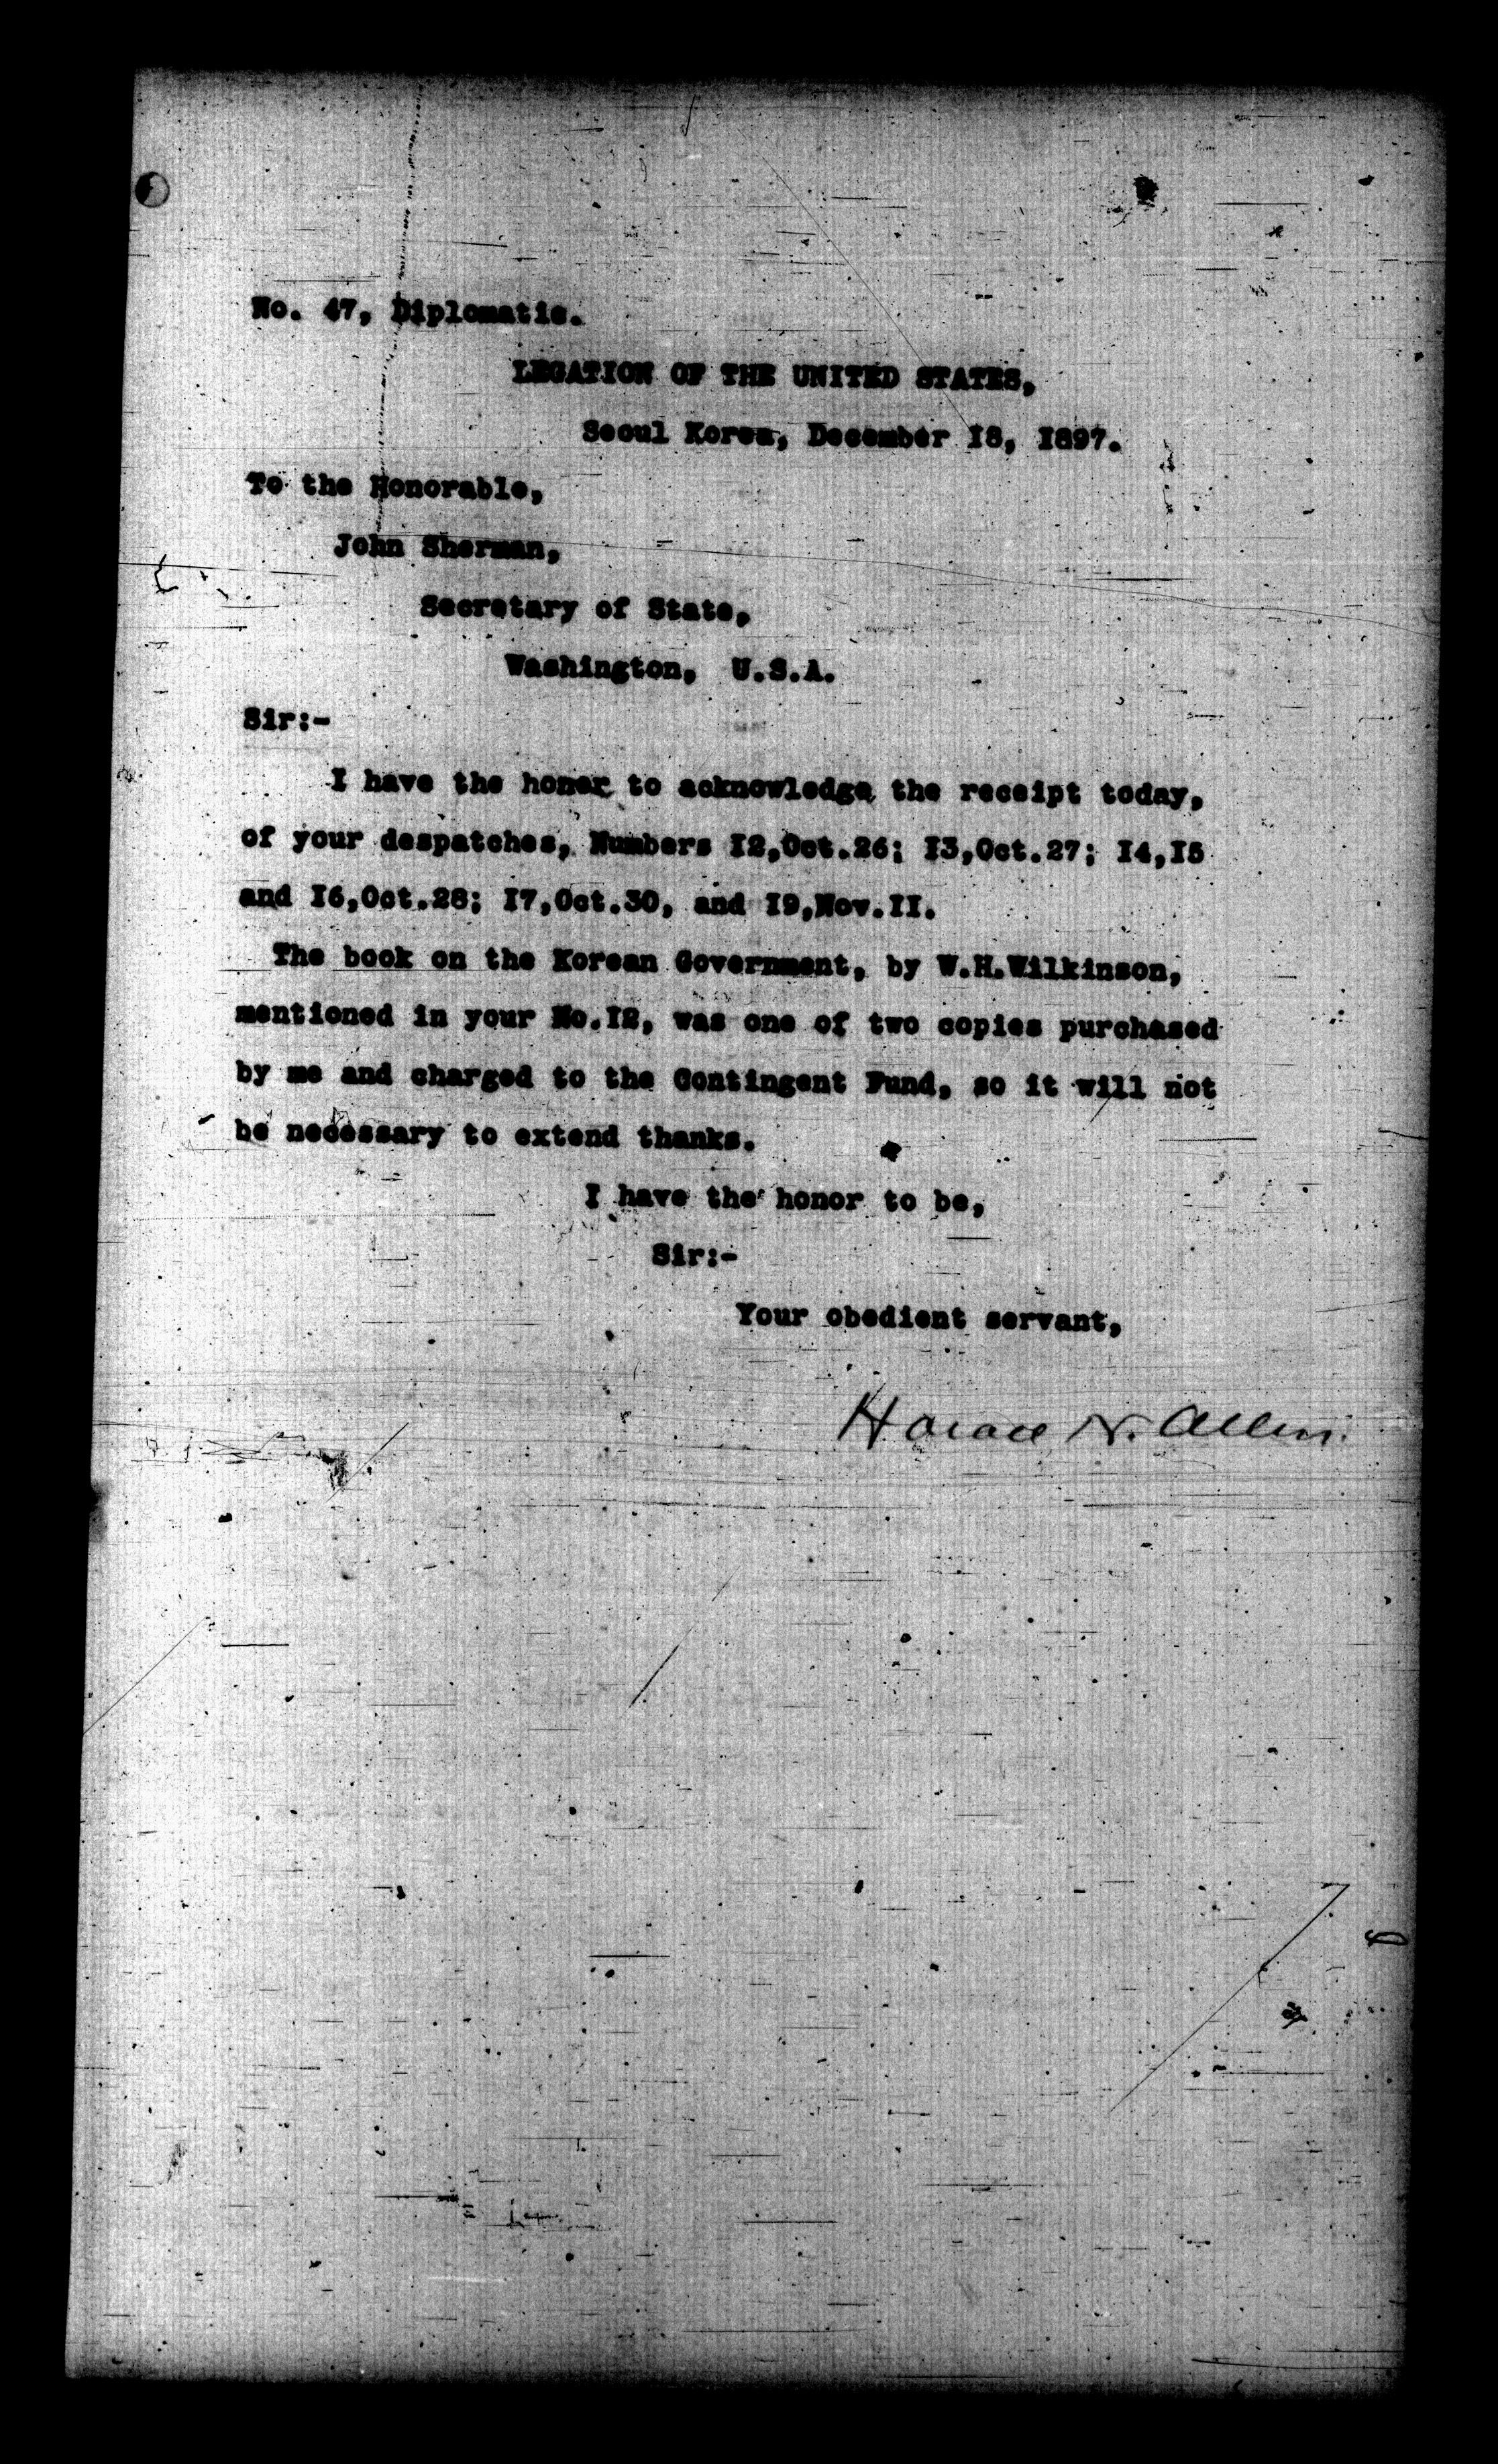 No. 47, Diplomatic.
LEGATION OF THE UNITED STATES,
Seoul Korea, December I8, I897.
To the Honorable,
John Sherman,
Secretary of State,
Washington, U.S.A.
Sir:-
I have the honor to acknowledge the receipt today,
of your despatches, Numbers I2,Oct.26; I3,Oct.27; I4,I5
and I6,Oct.28; I7,Oct.30, and I9,Nov.II.
The book on the Korean Government, by W.H.Wilkinson,
mentioned in your No.I2, was one of two copies purchased
by me and charged to the Contingent Fund, so it will not
be necessary to extend thanks.
I have the honor to be,
Sir:-
Your obedient servant,
Horace N. Allen.